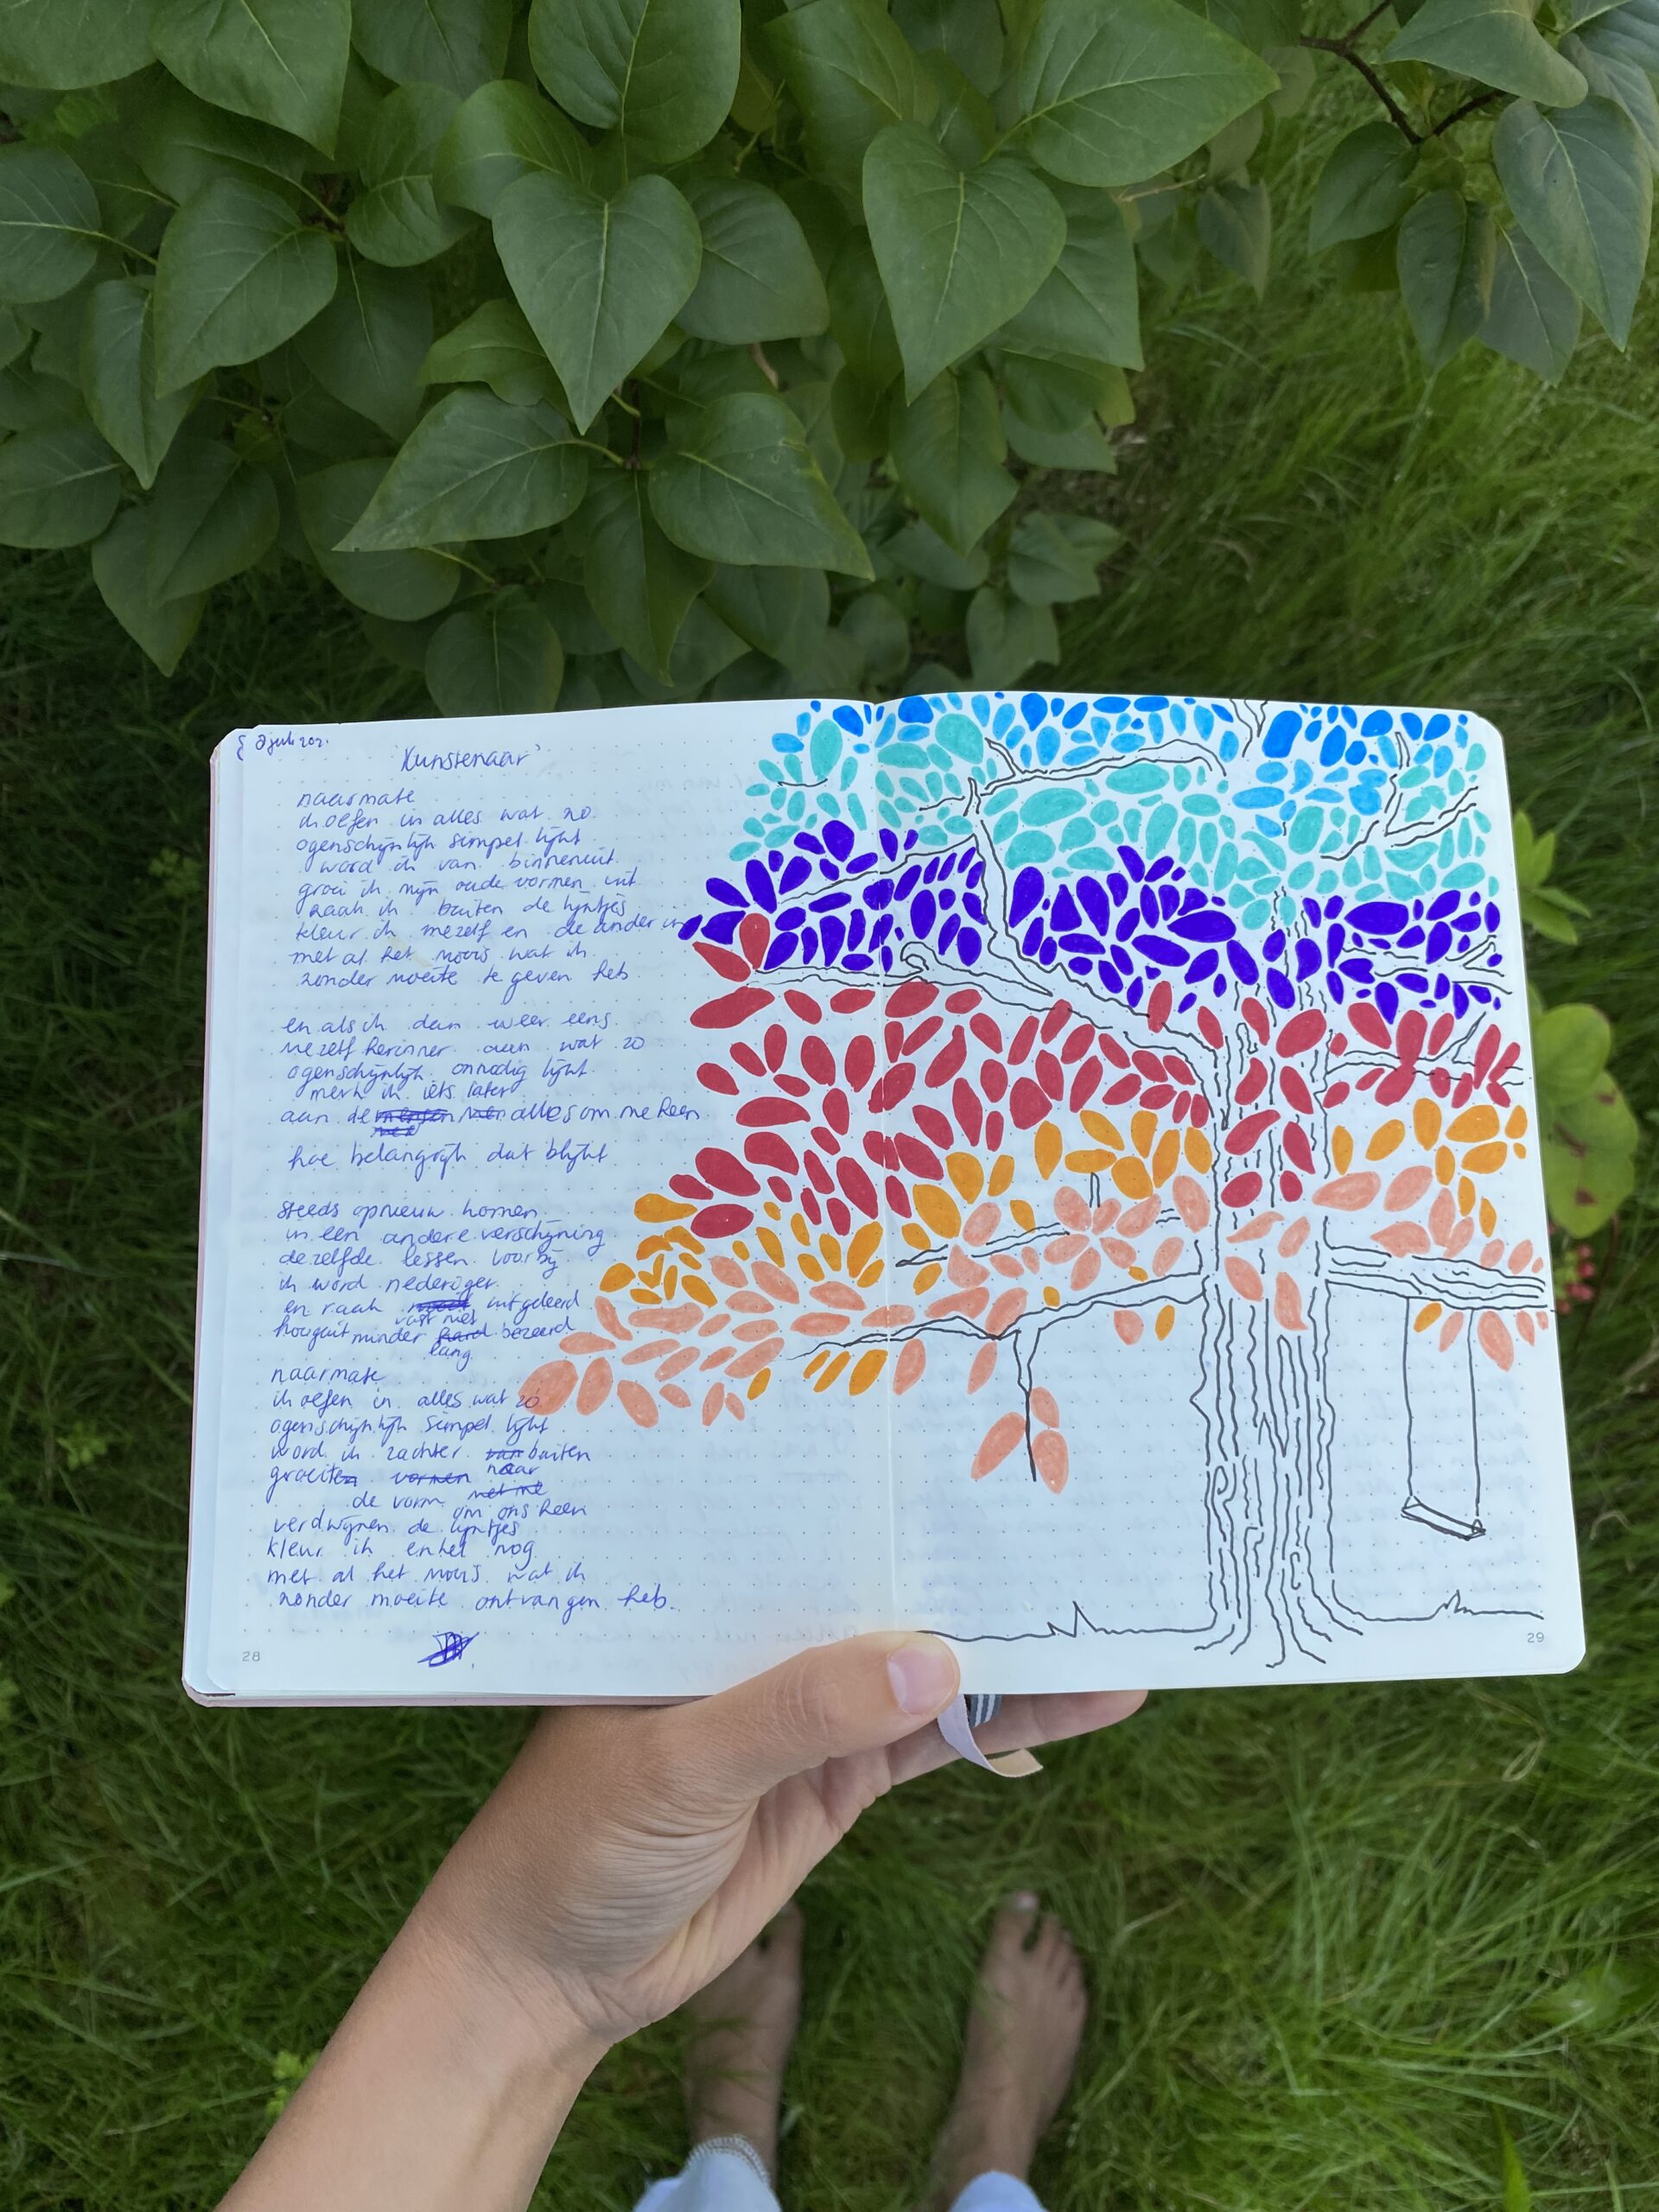 juli
Kunstenaar
naarmate
ik oefen in alles wat zo
ogenschijnlijk simpel lijkt
word ik van binnenuit
groei ik mijn oude vormen uit
raak ik buiten de lijntjes
kleur ik mezelf en de ander in
met al het moois wat ik
zonder moeite te geven heb
en als ik dan weer eens
mezelf herinner aan wat zo
ogenschijnlijk onnodig lijkt
merk ik iets later
aan de mensen alles om me heen
hoe belangrijk dat blijkt
steeds opnieuw komen
in een andere verschijning
dezelfde lessen voorbij
ik word nederiger
en raak uitgeleerd
vast niet
hooguit minder hard bezeerd
lang
naarmate
ik oefen in alles wat zo
ogenschijnlijk simpel lijkt
word ik zachter van buiten
groeiten vormen naar
de vorm met me
om ons heen
verdwijnen de lijntjes
kleur ik enkel nog
met al het moois wat ik
zonder moeite ontvangen heb.
28
29